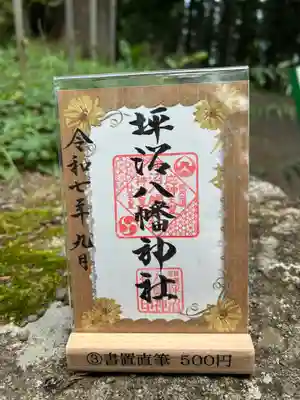 坪沼八幡神社
令和七年 九月
③書置直筆 500円